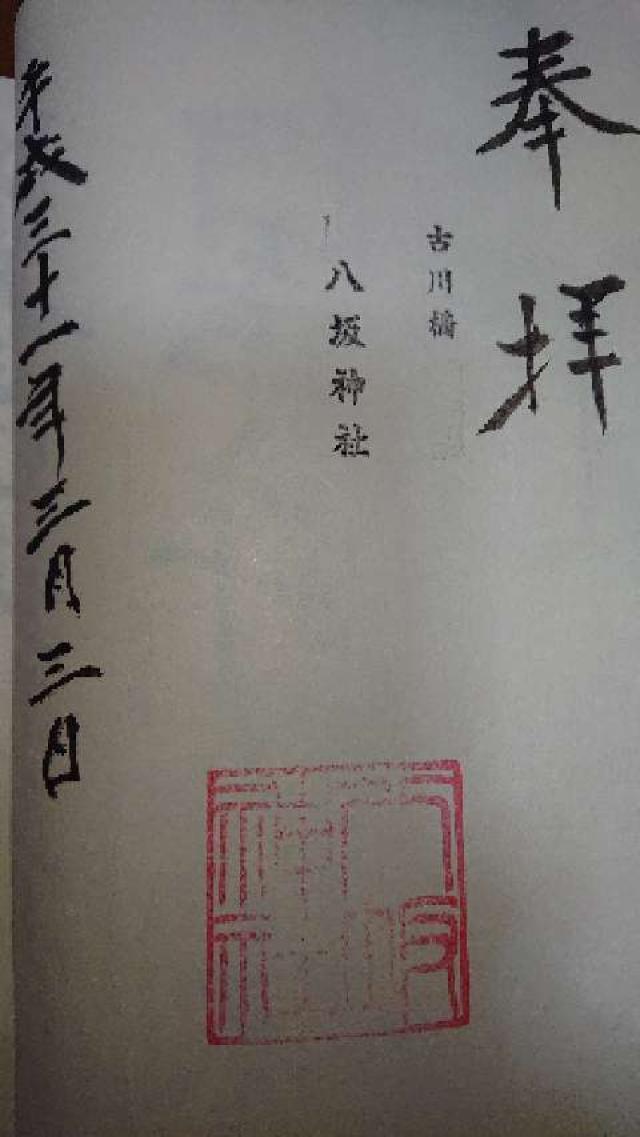 奉拝
古川橋
八坂神社
平成三十一年三月三日
八坂神社